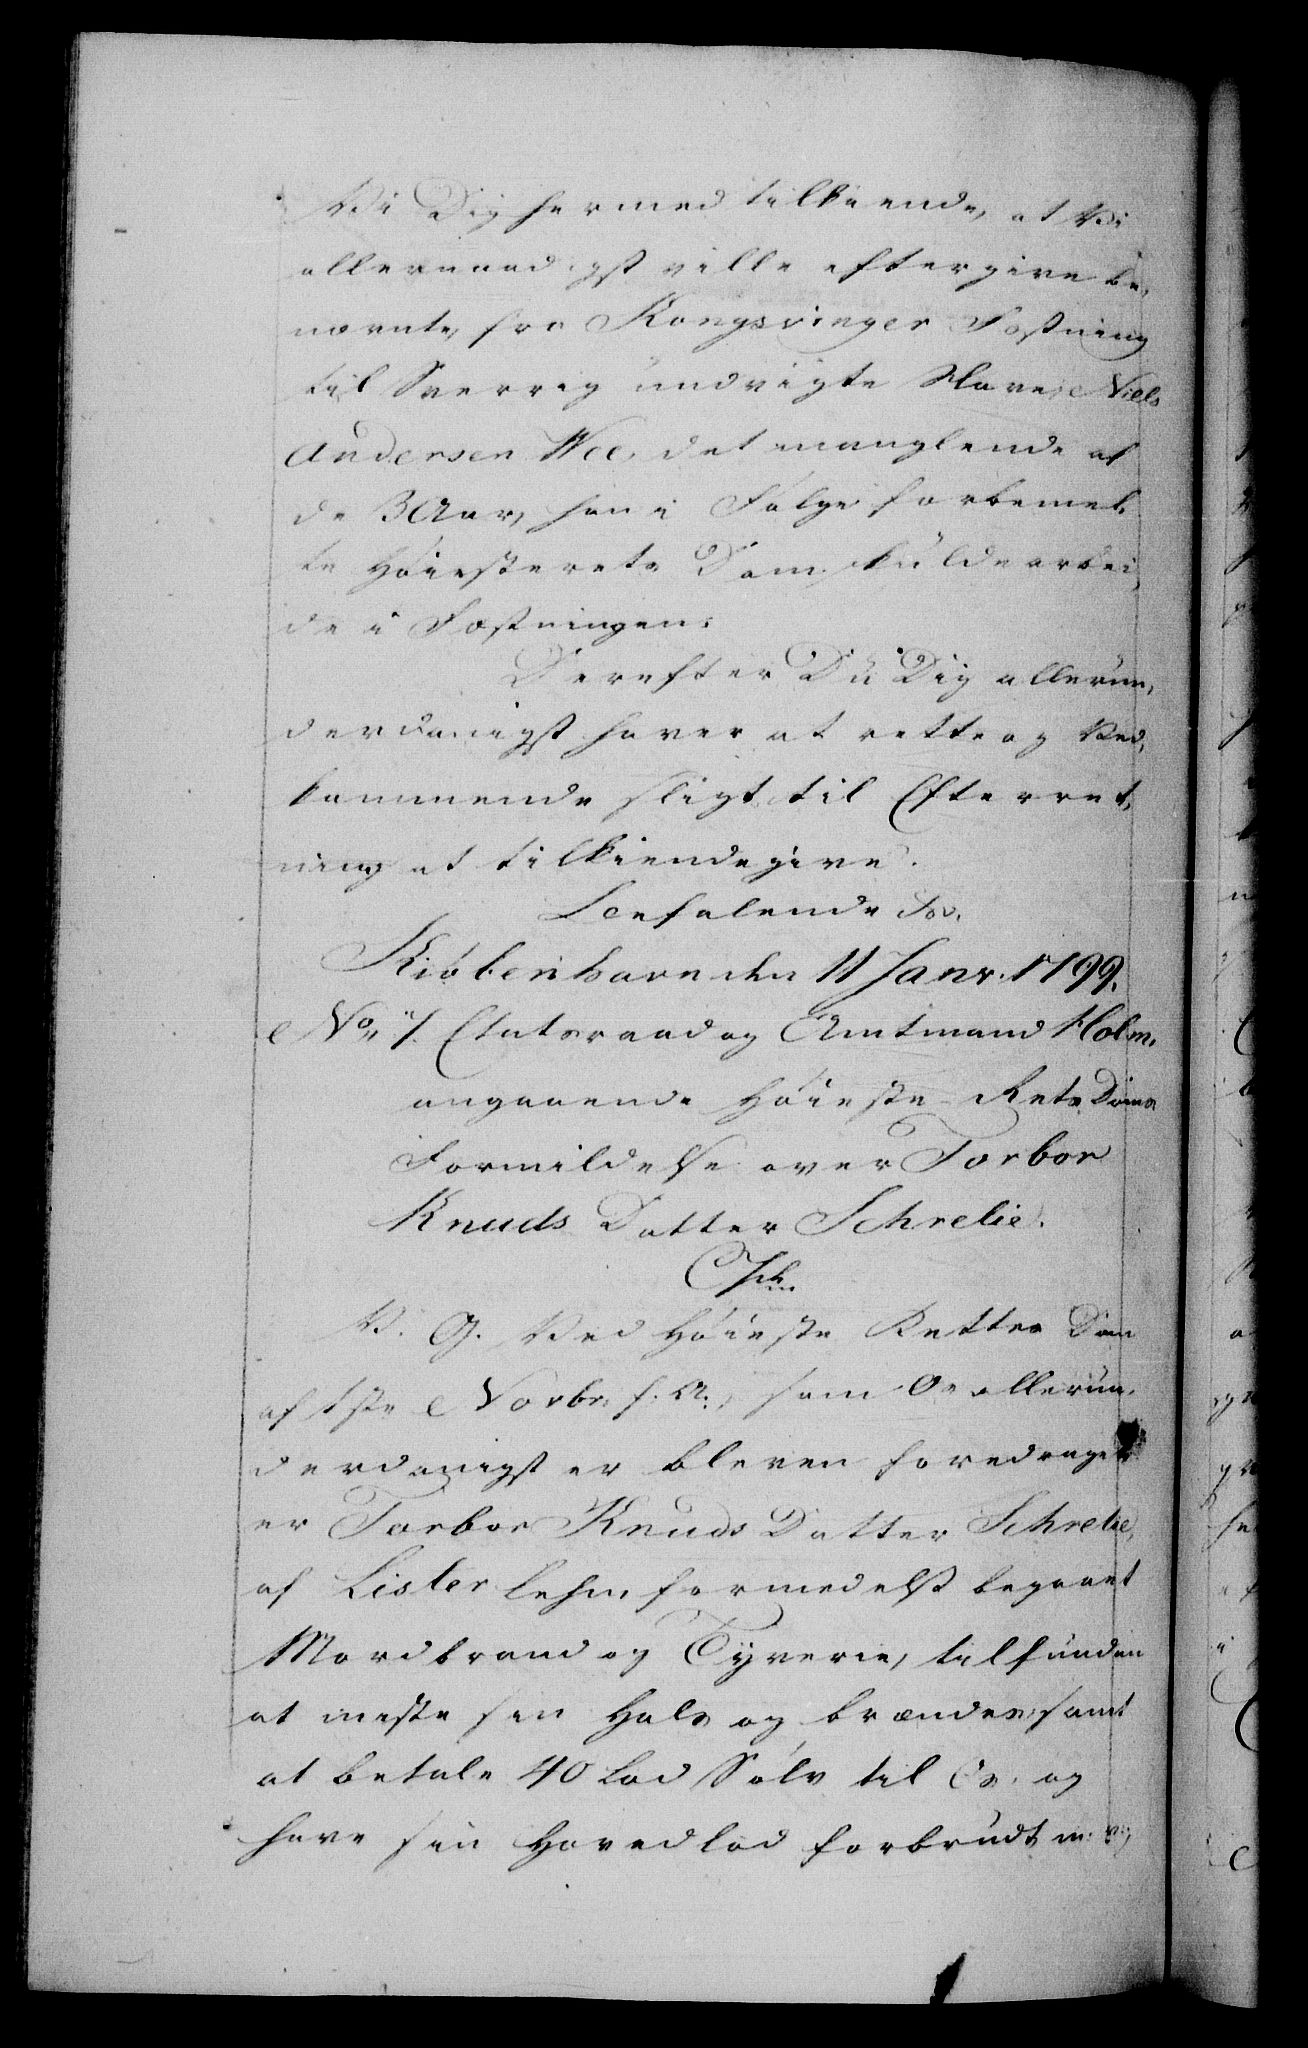 Vi Dig hermed tilkiende, at Vi
allernaadigst ville eftergive be,
nævnte, fra Kongsvinger Fæstning
til Sverrig undvigte Slave, Niels
Andersen Wee, det manglende af
de 3 Aar, han i Følge forbemel,
te Høiesterets Dom skulde arbei,
de i Fæstningen.
Derefter Du Dig allerun,
derdanigst haver at rette og Ved,
kommende sligt til Efterret,
ning at tilkiendegive.
Befalende &c.
Kiøbenhavn den 11 Janr. 1799.
No. 7. Etatsraad og Amtmand Holm,
angaaende Høieste Rets Doms
Formildelse over Torbor
Knuds Datter Schrelie.
V. G. Ved Høieste Rettes Dom
af 1ste Novbr. f. A., som Os allerun,
derdanigst er bleven foredraget
er Torbor Knuds Datter Schrelie,
af Lister Lehn formedelst begaaet
Mordbrand og Tyverie, tilfunden
at miste sin Hals og brændes, samt
at betale 40 Lod Sølv til Os, og
have sin Hovedlod forbrudt m. v.,